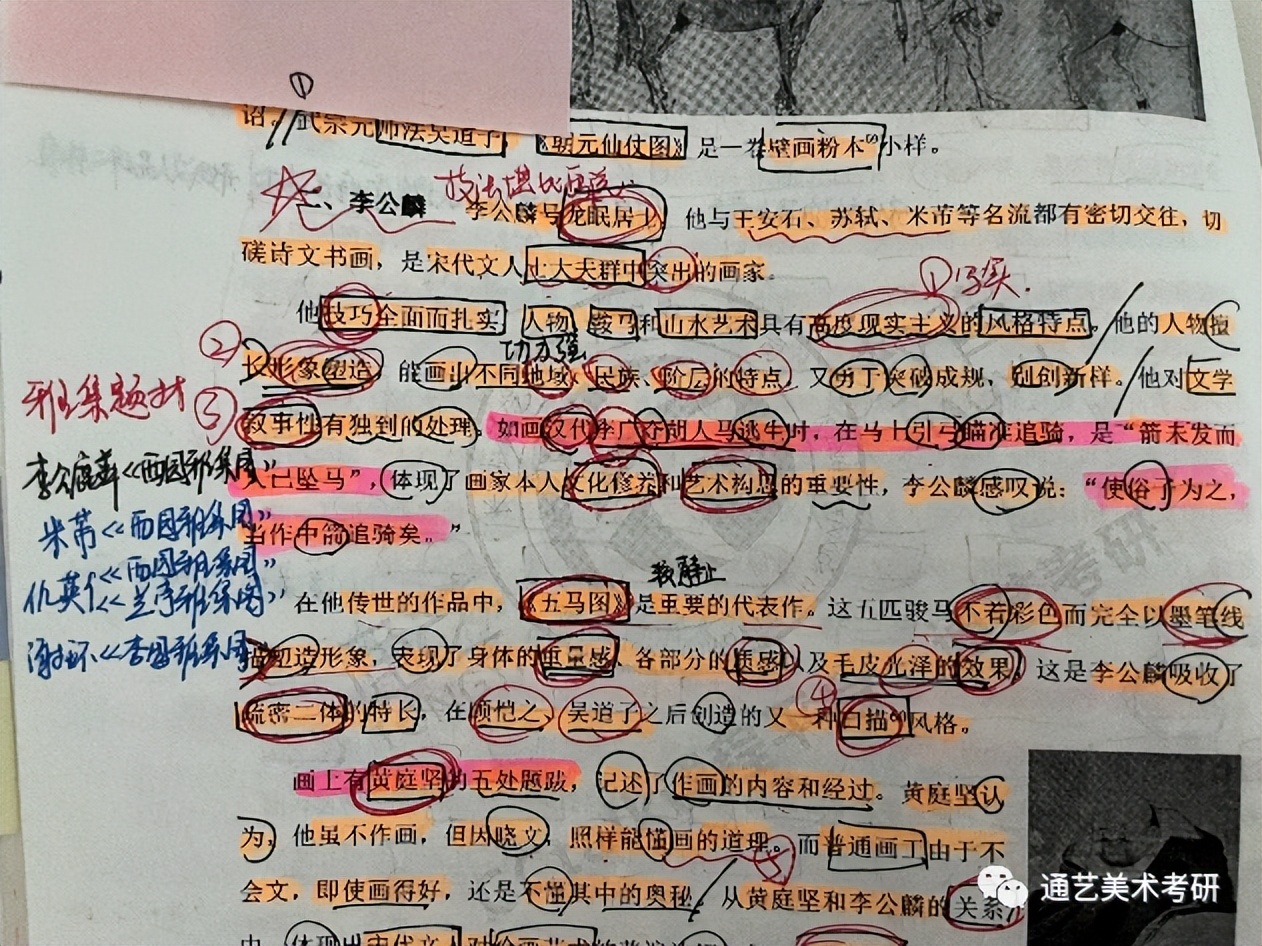 ①
诏。武宗元师法吴道子 《朝元仙仗图》是一卷壁画粉本小样。
二、李公麟 李公麟号龙眠居士 他与王安石、苏轼、米芾等名流都有密切交往，切
磋诗文书画，是宋代文人士大夫群中突出的画家。
①写实.
他技巧全面而扎实 人物、鞍马和山水艺术具有高度现实主义的风格特点。他的人物擅
②
功力强
长形象塑造，能画出不同地域、民族、阶层的特点，又勇于突破成规，别创新样。他对文学
雅集题材 ③
叙事性有独到的处理。如画汉代李广夺胡人马逃生时，在马上引弓瞄准追骑，是“箭未发而
李公麟《西园雅集图》
人已坠马”，体现了画家本人文化修养和艺术构思的重要性，李公麟感叹说：“使俗子为之，
米芾《西园雅集图》
当作中箭追骑矣。”
仇英《西园雅集图》
《兰亭雅集图》
较静止
在他传世的作品中，《五马图》是重要的代表作。这五匹骏马不着彩色而完全以墨笔线
谢环《杏园雅集图》
描塑造形象，表现了身体的重量感、各部分的质感以及毛皮光泽的效果，这是李公麟吸收了
④
疏密二体的特长，在顾恺之、吴道子之后创造的又一种白描风格。
画上有黄庭坚的五处题跋，记述了作画的内容和经过。黄庭坚认
为，他虽不作画，但因晓文，照样能懂画的道理。而普通画工由于不
会文，即使画得好，还是不懂其中的奥秘。从黄庭坚和李公麟的关系
中，体现出宋代文人对绘画艺术的
通艺美术考研